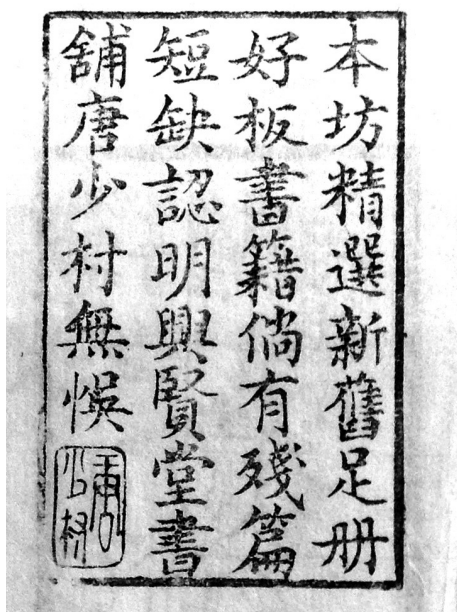 本坊精選新舊足册
好板書籍倘有殘篇
短缺認明興賢堂書
舖唐少村無悞
唐少村